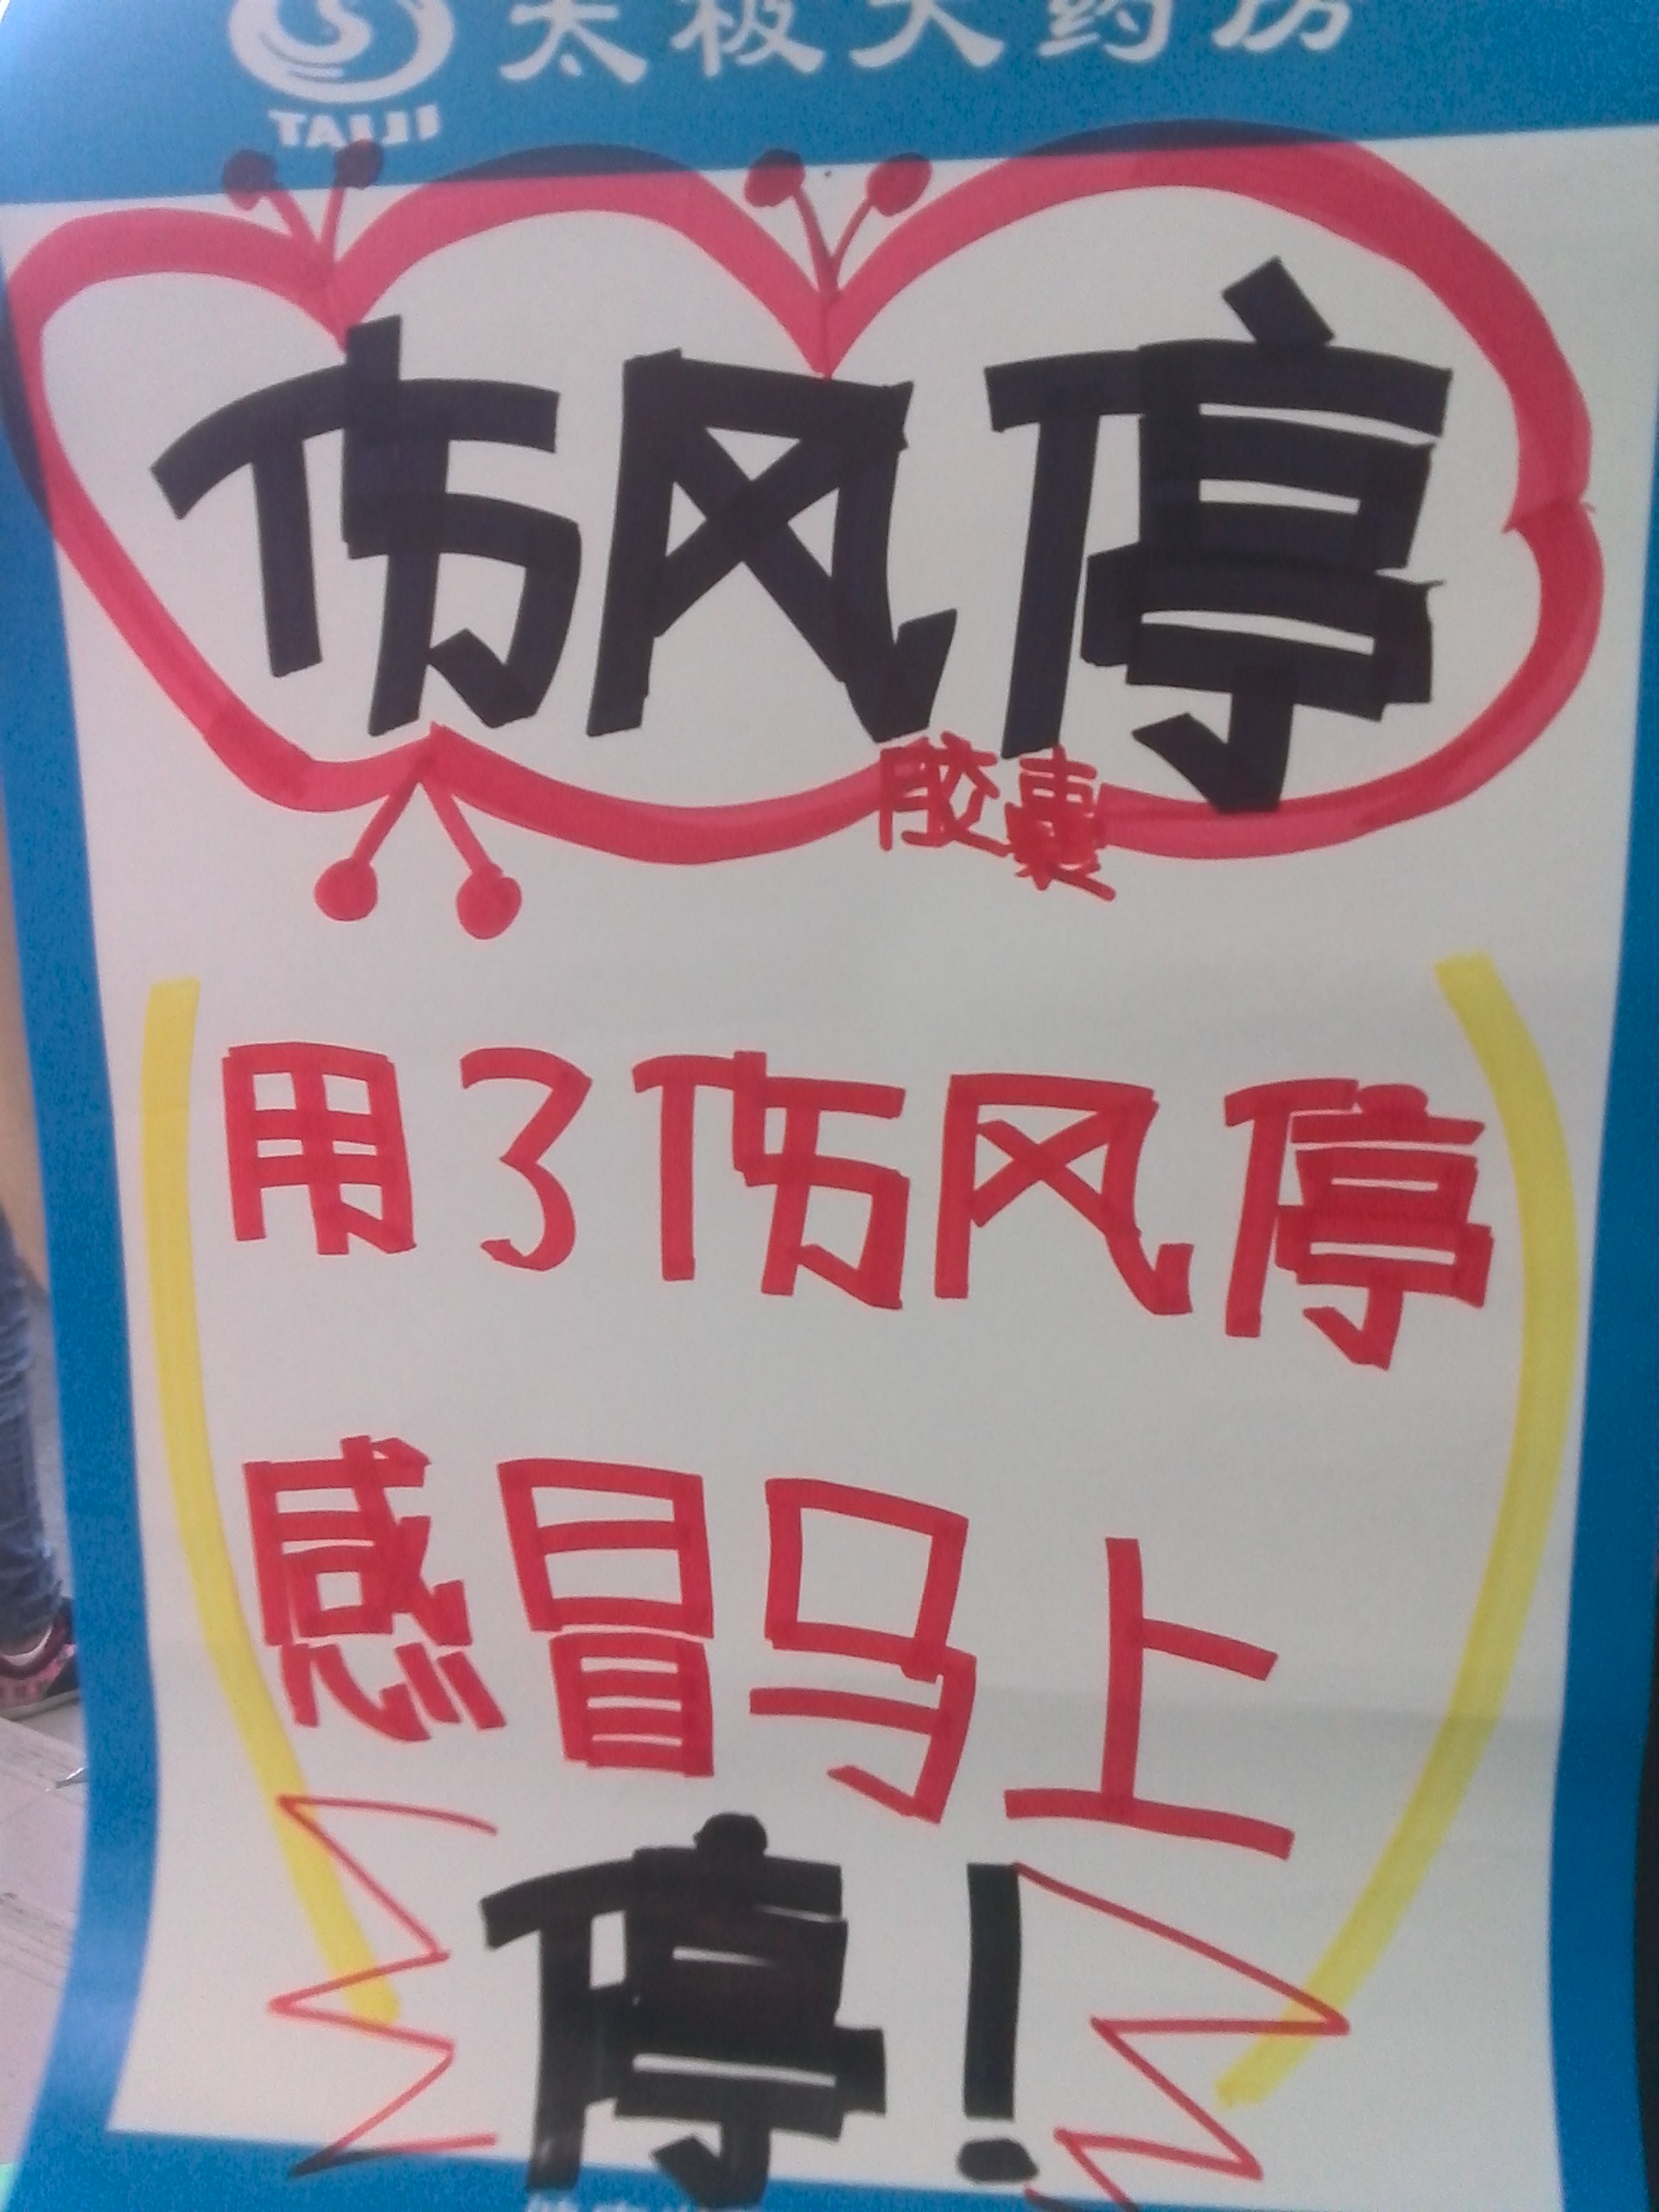 太极大药房
TAIJI
伤风停
胶囊
用了伤风停
感冒马上
停!